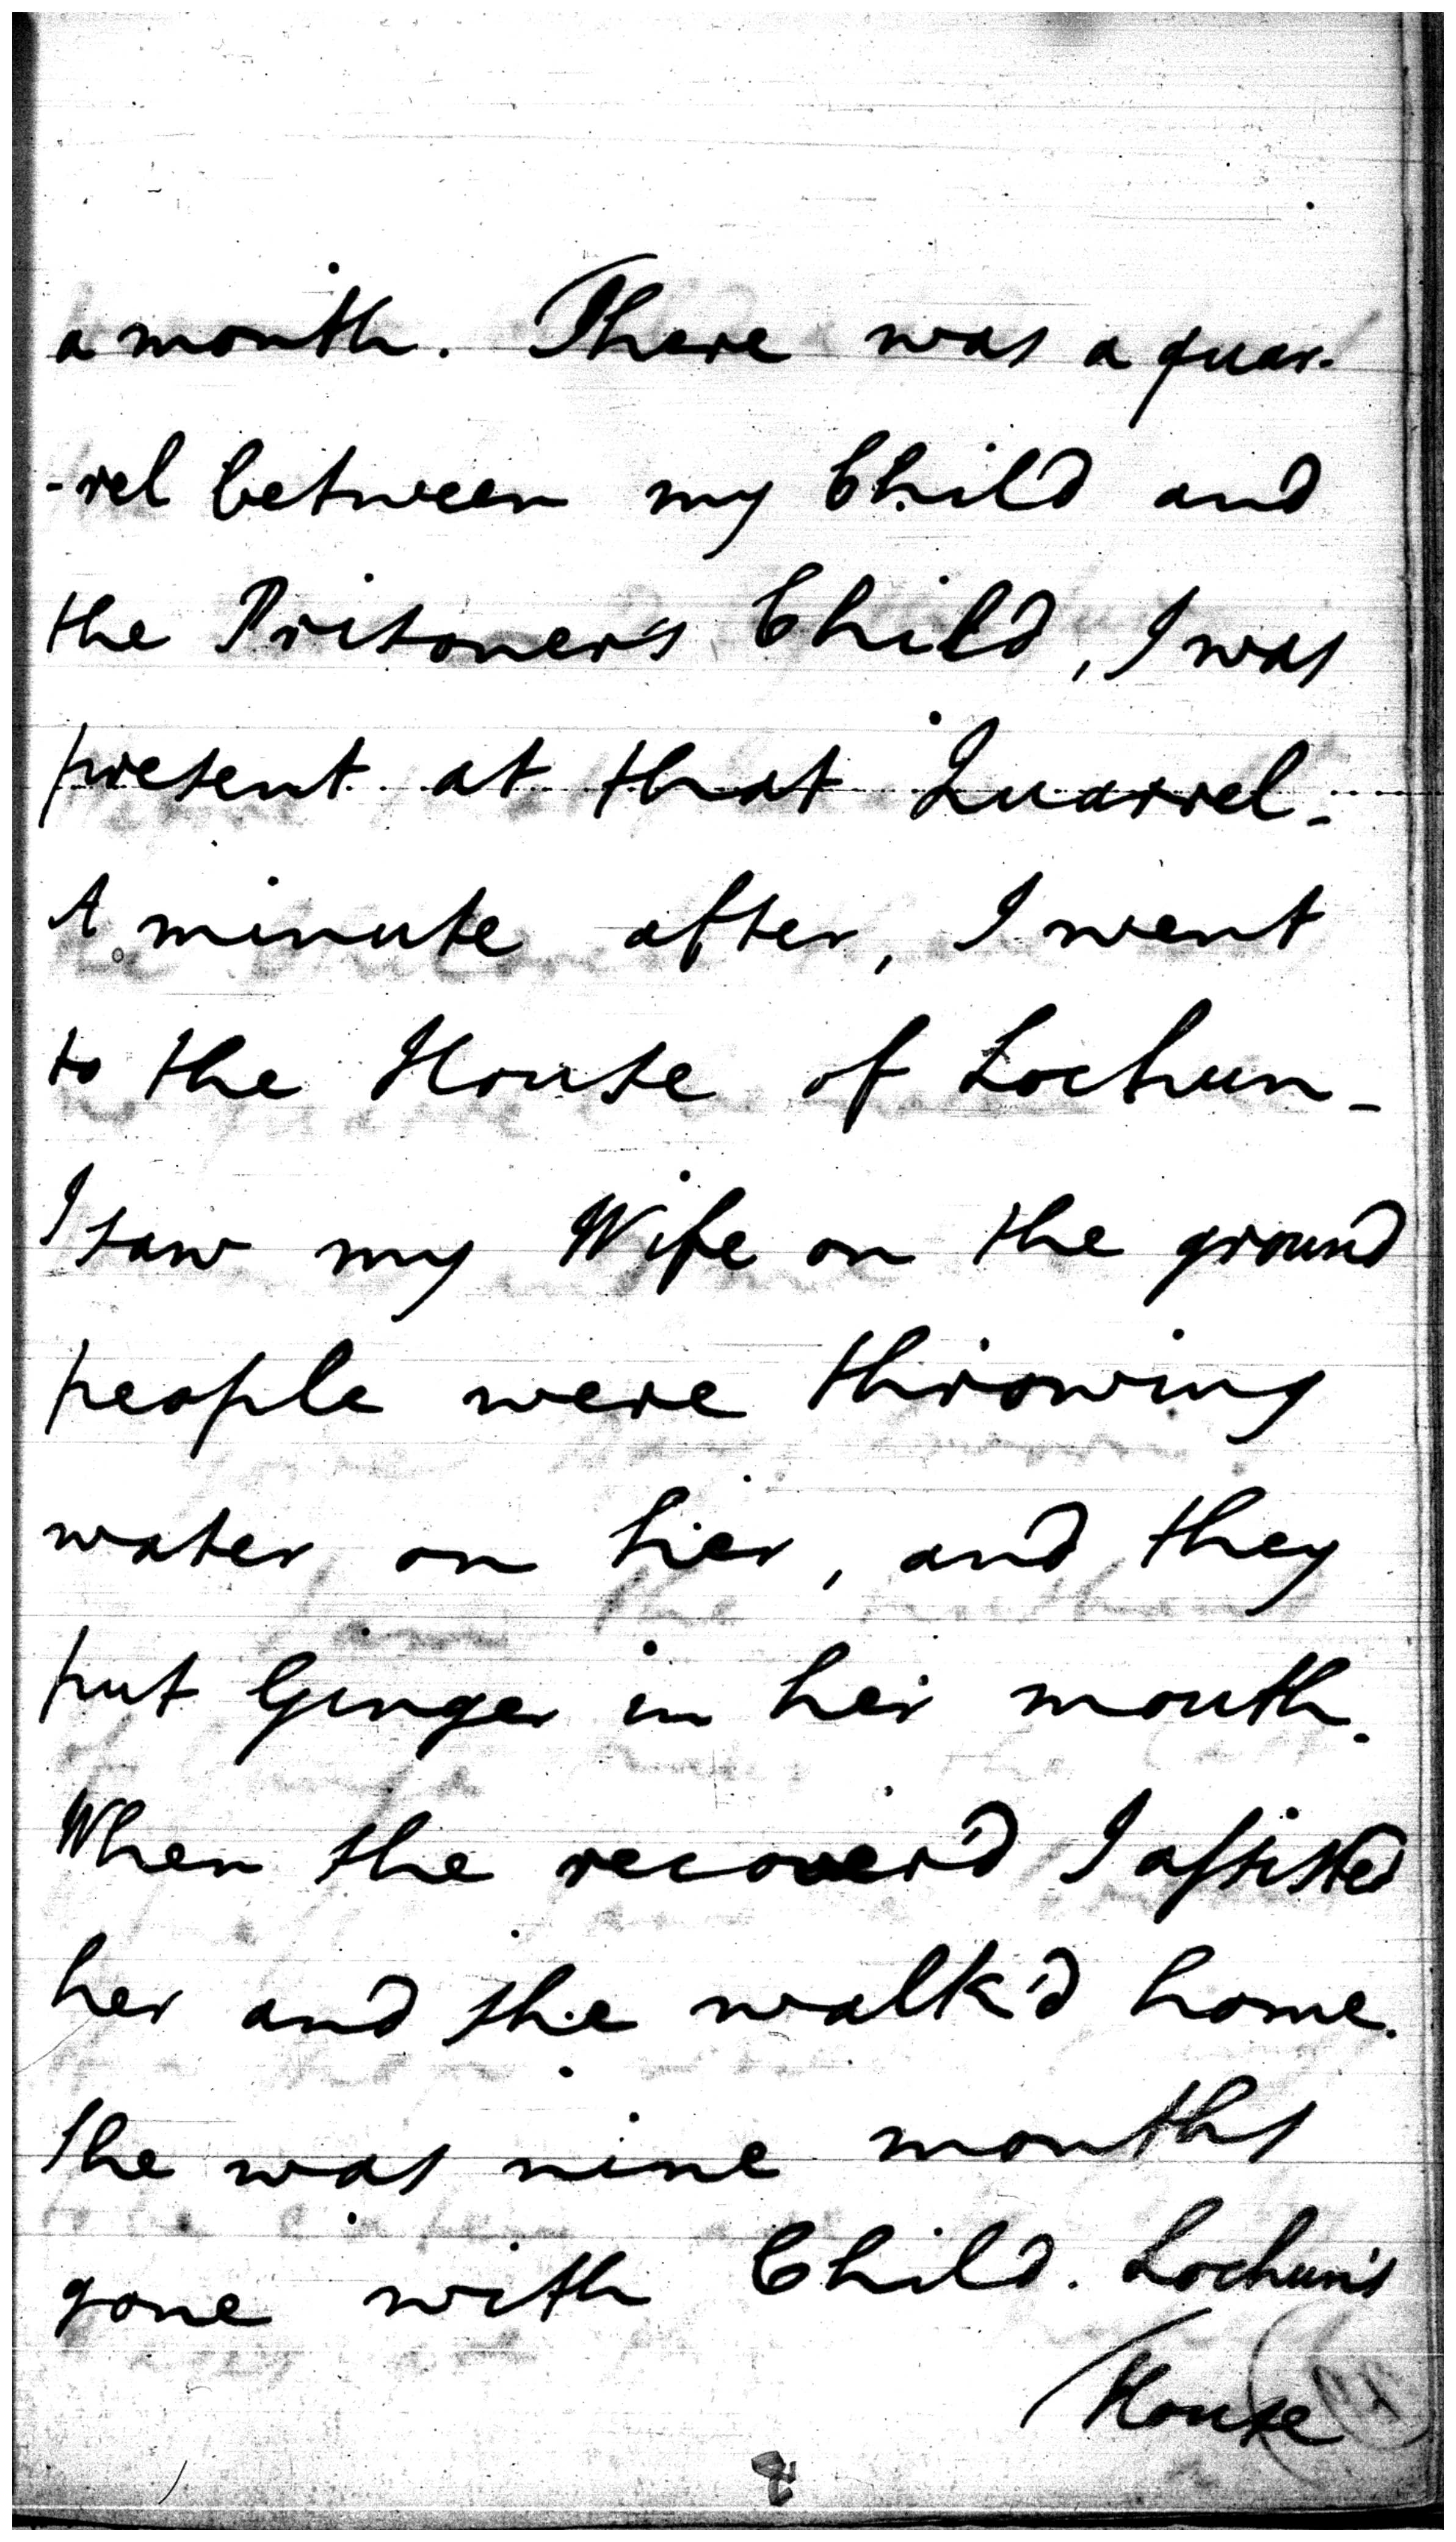 a month. There was a quar-
-rel between my Child and
the Prisoner's Child, I was
present at that Quarrel_
A minute after, I went
to the House of Lochun_
I saw my Wife on the ground
people were throwing
water on her, and they
put Ginger in her mouth.
When she recover'd I assisted
her and she walk'd home.
She was nine months
gone with Child. Lochun's
House
8